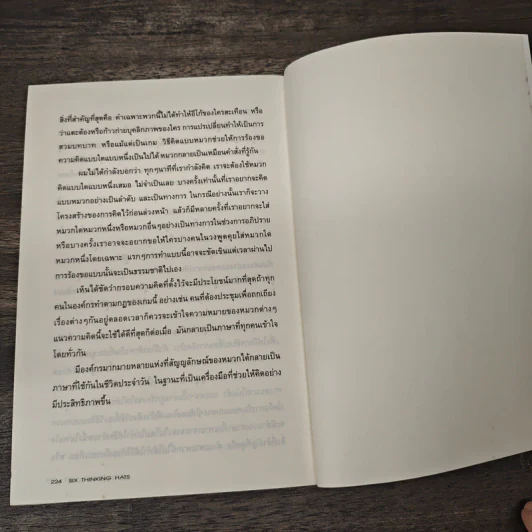 สิ่งที่สำคัญที่สุดคือ คำเฉพาะพวกนี้ไม่ได้ทำให้อีโก้ของใครสะเทือน หรือ
ว่าแตะต้องหรือก้าวก่ายบุคลิกภาพของใคร การแปรเปลี่ยนทำให้เป็นการ
สวมบทบาท หรือแม้แต่เป็นเกม วิธีคิดแบบหมวกช่วยให้การร้องขอ
ความคิดแบบใดแบบหนึ่งเป็นไปได้ หมวกกลายเป็นเหมือนคำสั่งที่รู้กัน
ผมไม่ได้กำลังบอกว่า ทุกๆนาทีที่เรากำลังคิด เราจะต้องใช้หมวก
คิดแบบใดแบบหนึ่งเสมอ ไม่จำเป็นเลย บางครั้งเท่านั้นที่เราอยากจะคิด
แบบหมวกอย่างเป็นลำดับ และเป็นทางการ ในกรณีอย่างนั้นเราก็จะวาง
โครงสร้างของการคิดไว้ก่อนล่วงหน้า แล้วก็มีหลายครั้งที่เราอยากจะใส่
หมวกใดหมวกหนึ่งหรือหมวกอื่นๆอย่างเป็นทางการในช่วงการอภิปราย
หรือบางครั้งเราอาจจะอยากขอให้ใครบางคนในวงพูดคุยใส่หมวกใด
หมวกหนึ่งโดยเฉพาะ แรกๆการทำแบบนี้อาจจะขัดเขินแต่เวลาผ่านไป
การร้องขอแบบนั้นจะเป็นธรรมชาติไปเอง
เห็นได้ชัดว่ากรอบความคิดที่ตั้งไว้จะมีประโยชน์มากที่สุดถ้าทุก
คนในองค์กรทำตามกฎของเกมนี้ อย่างเช่น คนที่ต้องประชุมเพื่อถกเถียง
เรื่องต่างๆกันอยู่ตลอดเวลาก็ควรจะเข้าใจความหมายของหมวกต่างๆ
แนวความคิดนี้จะใช้ได้ดีที่สุดก็ต่อเมื่อ มันกลายเป็นภาษาที่ทุกคนเข้าใจ
โดยทั่วกัน
มีองค์กรมากมายหลายแห่งที่สัญญลักษณ์ของหมวกได้กลายเป็น
ภาษาที่ใช้กันในชีวิตประจำวัน ในฐานะที่เป็นเครื่องมือที่ช่วยให้คิดอย่าง
มีประสิทธิภาพขึ้น
224 SIX THINKING HATS